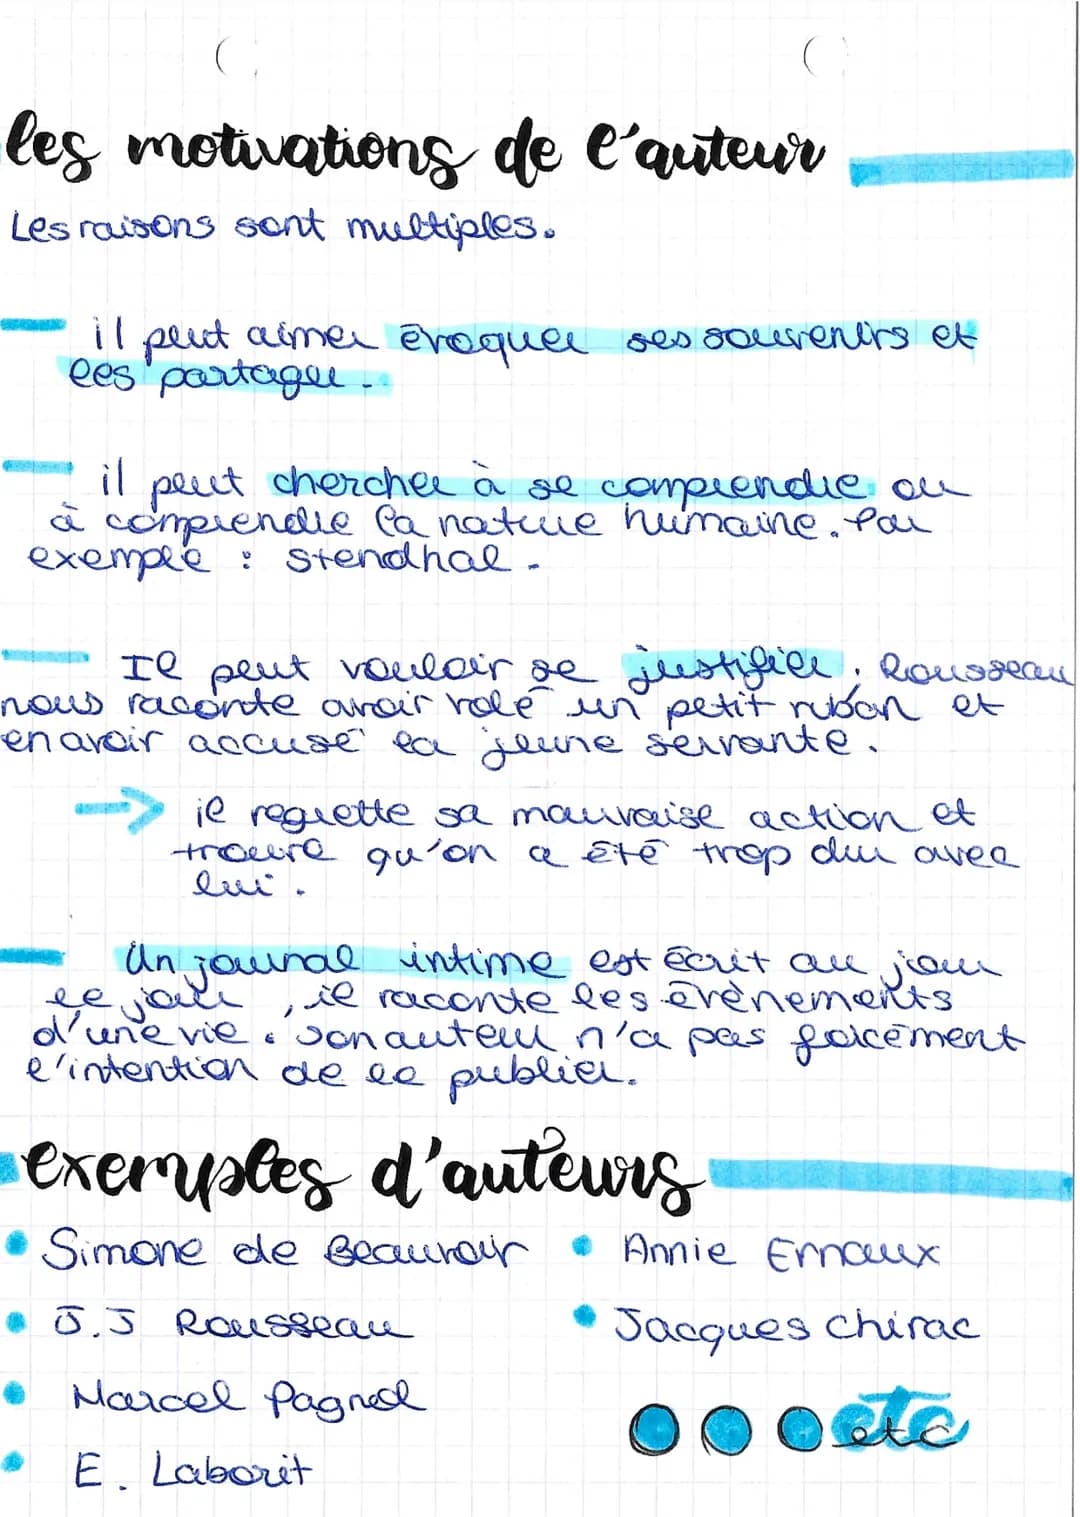 les motivations de l'auteur
Les raisons sont multiples.
il peut aimer évoquer ses souvenirs et
les partager.
il peut chercher à se comprendre ou
à comprendre la nature humaine. Par
exemple : Stendhal.
Il peut vouloir se justifier : Rousseau
nous raconte avoir volé un petit ruban et
en avoir accusé la jeune servante.
il regrette sa mauvaise action et
trouve qu'on a été trop dur avec
lui.
Un journal intime est écrit au jour
le jour, il raconte les évènements
d'une vie. Son auteur n'a pas forcément
l'intention de le publier.
exemples d'auteurs
Simone de Beauvoir
Annie Ernaux
J.J Rousseau
Jacques Chirac
Marcel Pagnol
etc
E. Laborit